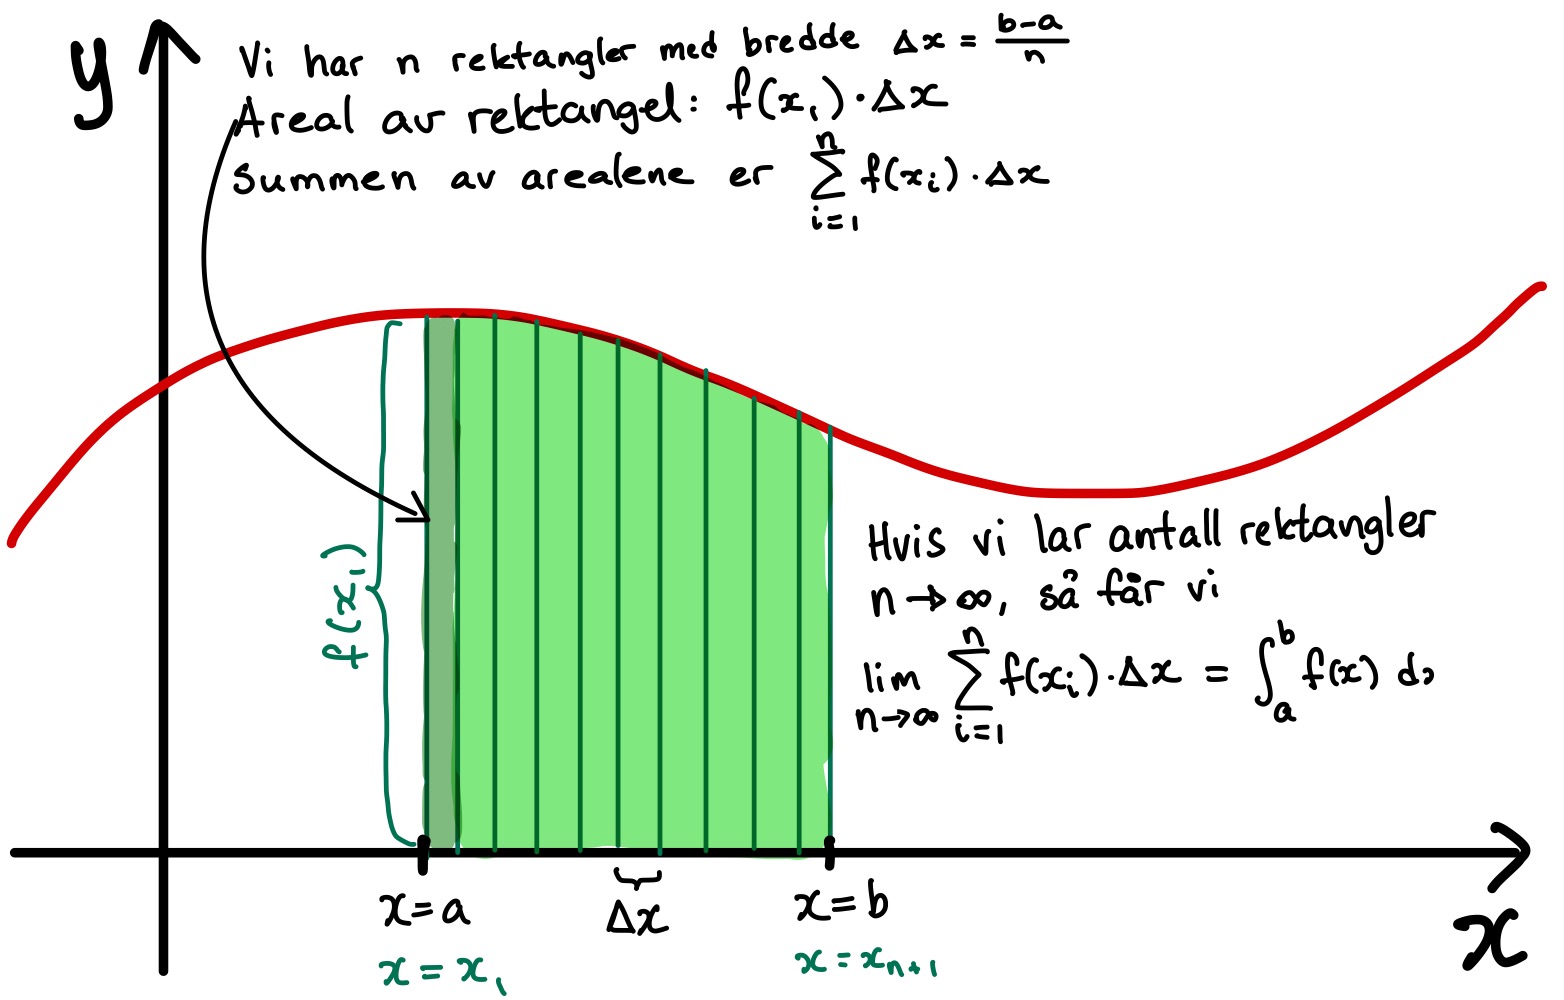 y
Vi har n rektangler med bredde Δx = (b-a)/n
Areal av rektangel: f(x₁)·Δx
summen av arealene er ∑ⁿᵢ₌₁ f(xᵢ)·Δx
f(x₁)
Hvis vi lar antall rektangler
n→∞, så får vi
lim n→∞ ∑ⁿᵢ₌₁ f(xᵢ)·Δx = ∫ₐᵇ f(x) d
x=a
Δx
x=b
x
x = x₁
x = xₙ₊₁